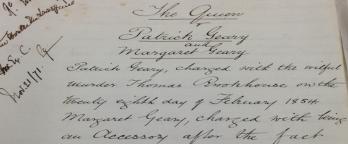 The Queen
Patrick Geary
and
Margaret Geary
Patrick Geary, charged with the wilful
murder Thomas Brookhouse on the
twenty eighth day of February 1854
Margaret Geary, charged with being
an Accessory after the fact
Nov 21/71